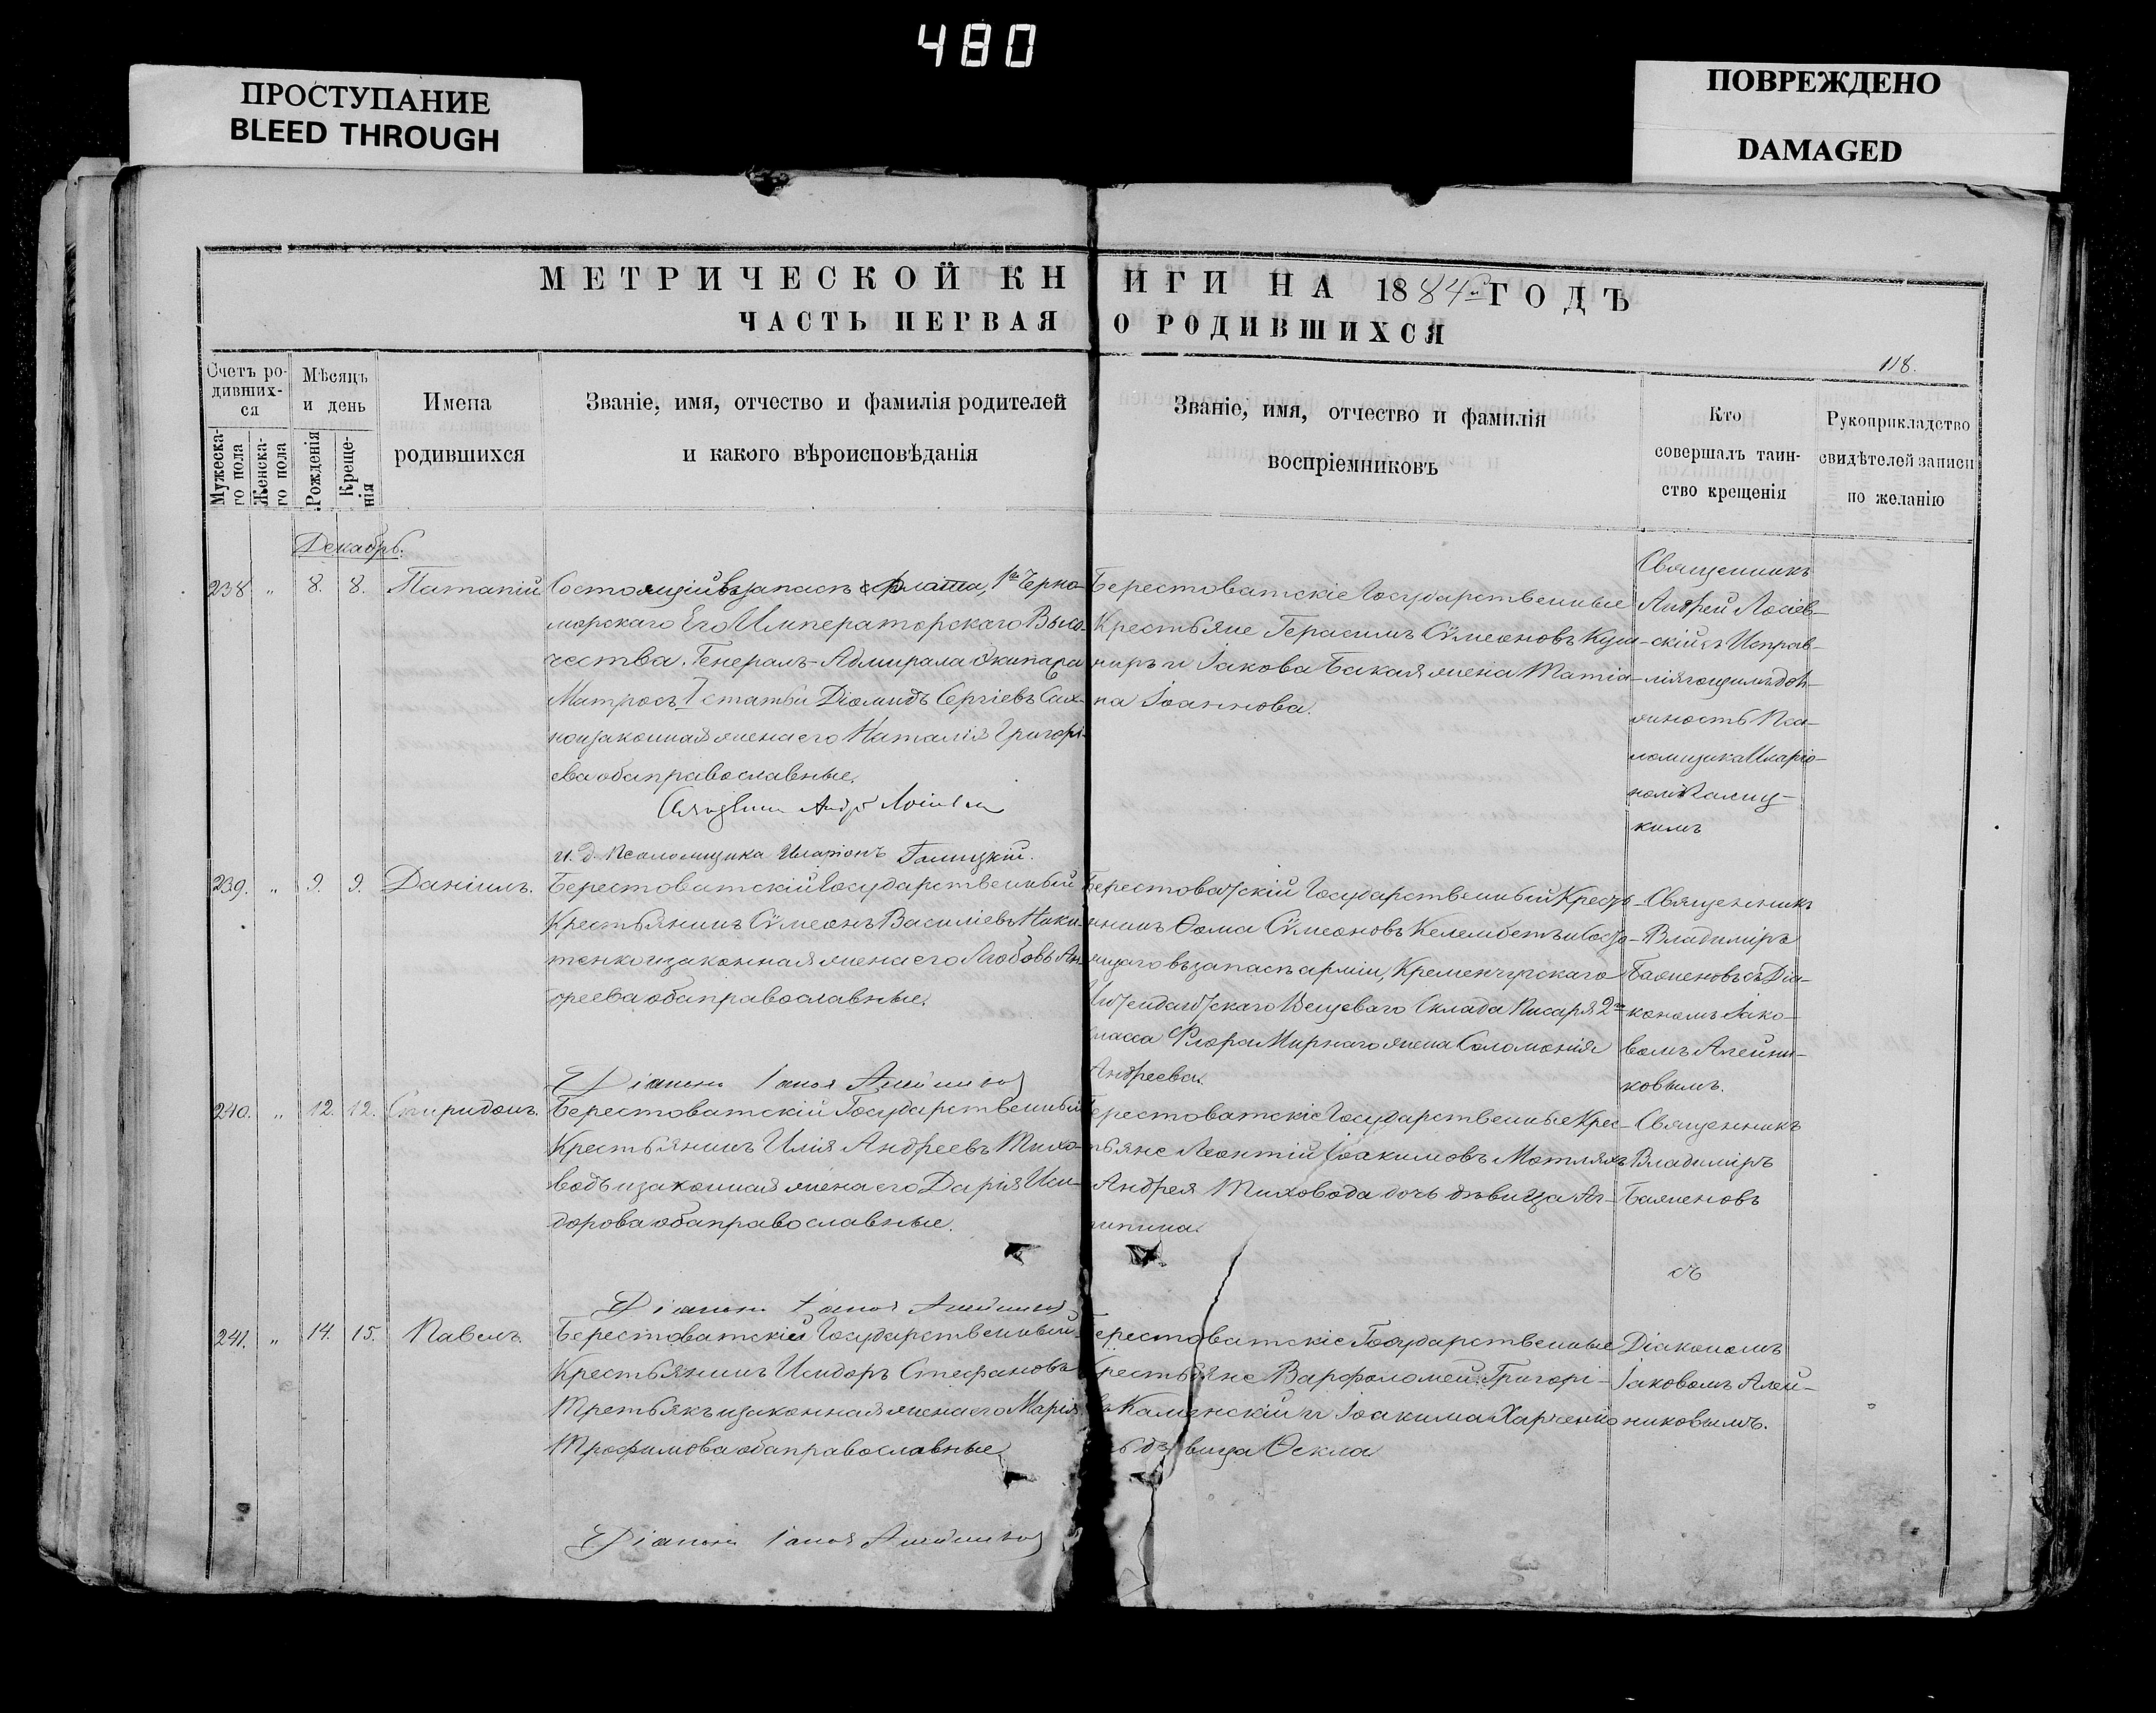 480
ПРОСТУПАНИЕ
BLEED THROUGH
ПОВРЕЖДЕНО
DAMAGED
МЕТРИЧЕСКОЙ КНИГИ НА 1884й ГОДЪ
ЧАСТЬ ПЕРВАЯ О РОДИВШИХСЯ
118.
Счетъ ро-
дивших-
ся
Мужеска-
го пола
Женска-
го пола
Мѣсяцъ
и день
Рожденія
Креще-
нія
Имена
родившихся
Званіе, имя, отчество и фамилія родителей
и какого вѣроисповѣданія
Званіе, имя, отчество и фамилія
воспріемниковъ
Кто
совершалъ таин-
ство крещенія
Рукоприкладство
свидѣтелей записи
по желанію
Декабрь.
238 " 8. 8. Патапій
Состоящій въ запасѣ флота, 1го Черно-
морскаго Его Императорскаго Высо-
чества, Генералъ-Адмирала Экипажа
Матросъ 1 статьи Діомидъ Сергіевъ
и законная жена его Наталія Григорі-
ева оба православные.
Берестоватскіе Государственные
Крестьяне Герасимъ Сѵмеоновъ Куш-
ниръ и Іакова Бакая жена Татіа-
на Іоаннова.
Священникъ
Андрей Лосіев-
скій съ Исправ-
ляющимъ дол-
жность Пса-
ломщика Иларіо-
номъ Галиц-
кимъ
Священникъ Андрей
и. д. Псаломщика Иларіонъ Галицкій.
239. " 9. 9. Даніилъ.
Берестоватскій Государственный
Крестьянинъ Сѵмеонъ Василіевъ Ники-
тенко и законная жена его Любовь Ан-
дреева оба православные.
Берестоватскій Государственный Кресть-
янинъ Ѳома Сѵмеоновъ Келембетъ и Состо-
ящаго въ запасѣ арміи, Кременчугскаго
Интендантскаго Вещеваго Склада Писаря 2го
класса Флора Мирнаго жена Соломонія
Андреева.
Священникъ
Владиміръ
Баженовъ съ Діа-
кономъ Іако-
вомъ Алейни-
ковымъ.
Діаконъ Іаковъ Алейниковъ
240. " 12. 12. Спиридонъ.
Берестоватскій Государственный
Крестьянинъ Илія Андреевъ Тихо-
водъ и законная жена его Дарія Иси-
дорова оба православные.
Берестоватскіе Государственные Крес-
тьяне Леонтій Іоакимовъ Мотляхъ
Андрея Тиховода дочь дѣвица Аг-
рипина.
Священникъ
Владиміръ
Баженовъ
съ
Діаконъ Іаковъ Алейниковъ
241. " 14. 15. Павелъ.
Берестоватскій Государственный
Крестьянинъ Исидоръ Стефановъ
Третьякъ и законная жена его Марія
Трофимова оба православные
Берестоватскіе Государственные
Крестьяне Варфоломей Григорі-
евъ Каменскій и Іоакима Харченко
дѣвица Ѳекла
Діакономъ
Іаковомъ Алей-
никовымъ.
Діаконъ Іаковъ Алейниковъ